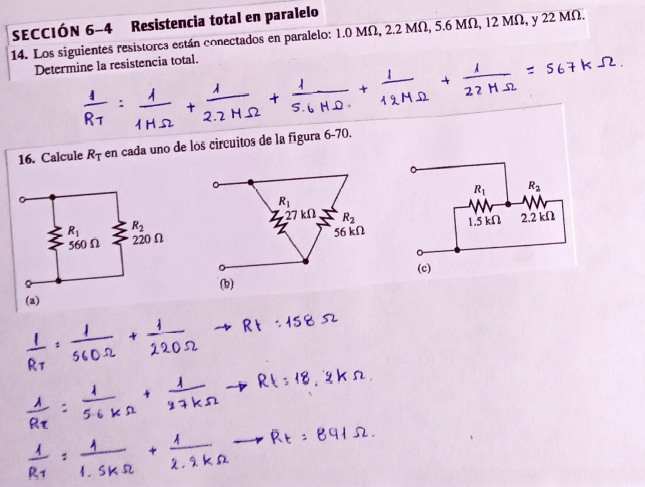 SECCIÓN 6–4 Resistencia total en paralelo
14. Los siguientes resistorca están conectados en paralelo: 1.0 MΩ, 2.2 MΩ, 5.6 MΩ, 12 MΩ, y 22 MΩ.
Determine la resistencia total.
1/RT : 1/1MΩ + 1/2.2MΩ + 1/5.6MΩ. + 1/12MΩ + 1/22MΩ = 567KΩ.
16. Calcule RT en cada uno de los circuitos de la figura 6-70.
R1
560 Ω
R2
220 Ω
(a)
R1
27 kΩ
R2
56 kΩ
(b)
R1
1.5 kΩ
R2
2.2 kΩ
(c)
1/RT : 1/560Ω + 1/220Ω → Rt : 158 Ω
1/Rt = 1/56KΩ + 1/27KΩ → Rt : 18.2KΩ.
1/RT : 1/1.5KΩ + 1/2.2KΩ → Rt : 891 Ω.